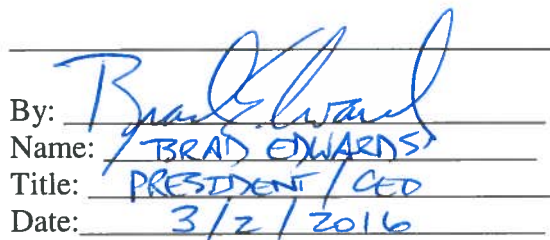 By: Brad Edwards
Name: BRAD EDWARDS
Title: PRESIDENT / CEO
Date: 3/2/2016